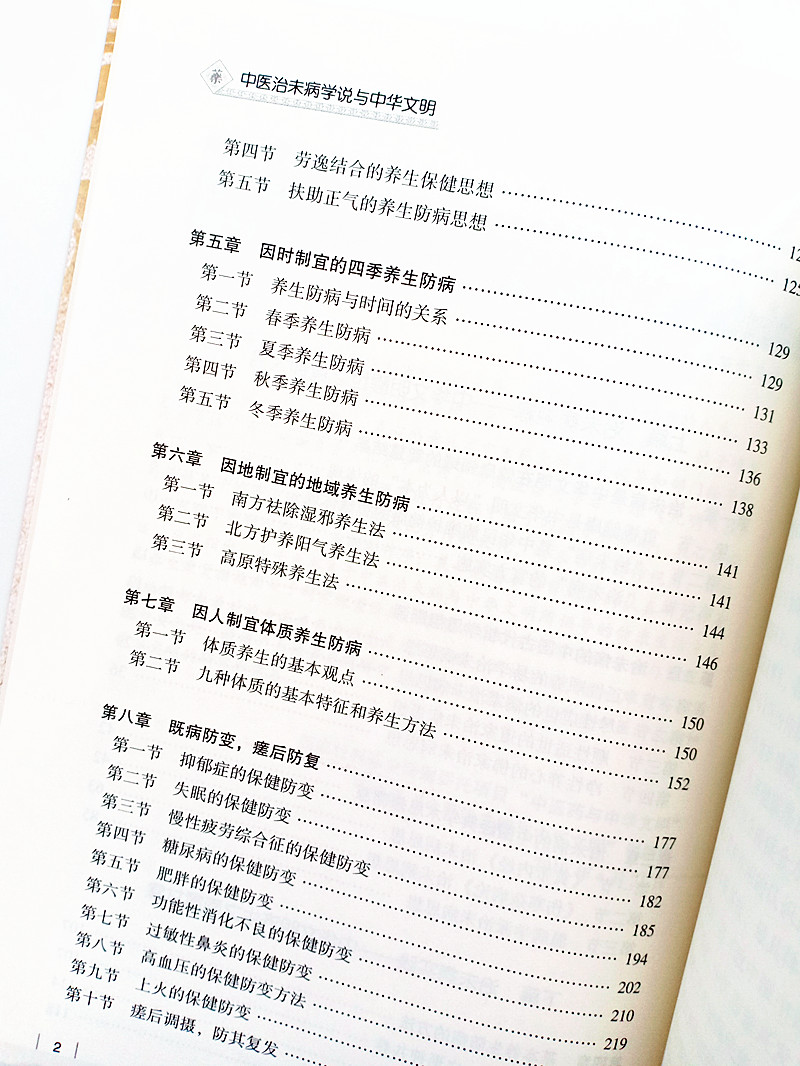 中医治未病学说与中华文明
第四节 劳逸结合的养生保健思想
第五节 扶助正气的养生防病思想 125
第五章 因时制宜的四季养生防病 129
第一节 养生防病与时间的关系 129
第二节 春季养生防病 131
第三节 夏季养生防病 133
第四节 秋季养生防病 136
第五节 冬季养生防病 138
第六章 因地制宜的地域养生防病 141
第一节 南方祛除湿邪养生法 141
第二节 北方护养阳气养生法 144
第三节 高原特殊养生法 146
第七章 因人制宜体质养生防病 150
第一节 体质养生的基本观点 150
第二节 九种体质的基本特征和养生方法 152
第八章 既病防变，瘥后防复 177
第一节 抑郁症的保健防变 177
第二节 失眠的保健防变 182
第三节 慢性疲劳综合征的保健防变 185
第四节 糖尿病的保健防变 194
第五节 肥胖的保健防变 202
第六节 功能性消化不良的保健防变 210
第七节 过敏性鼻炎的保健防变 219
第八节 高血压的保健防变方法
第九节 上火的保健防变
第十节 瘥后调摄，防其复发
2